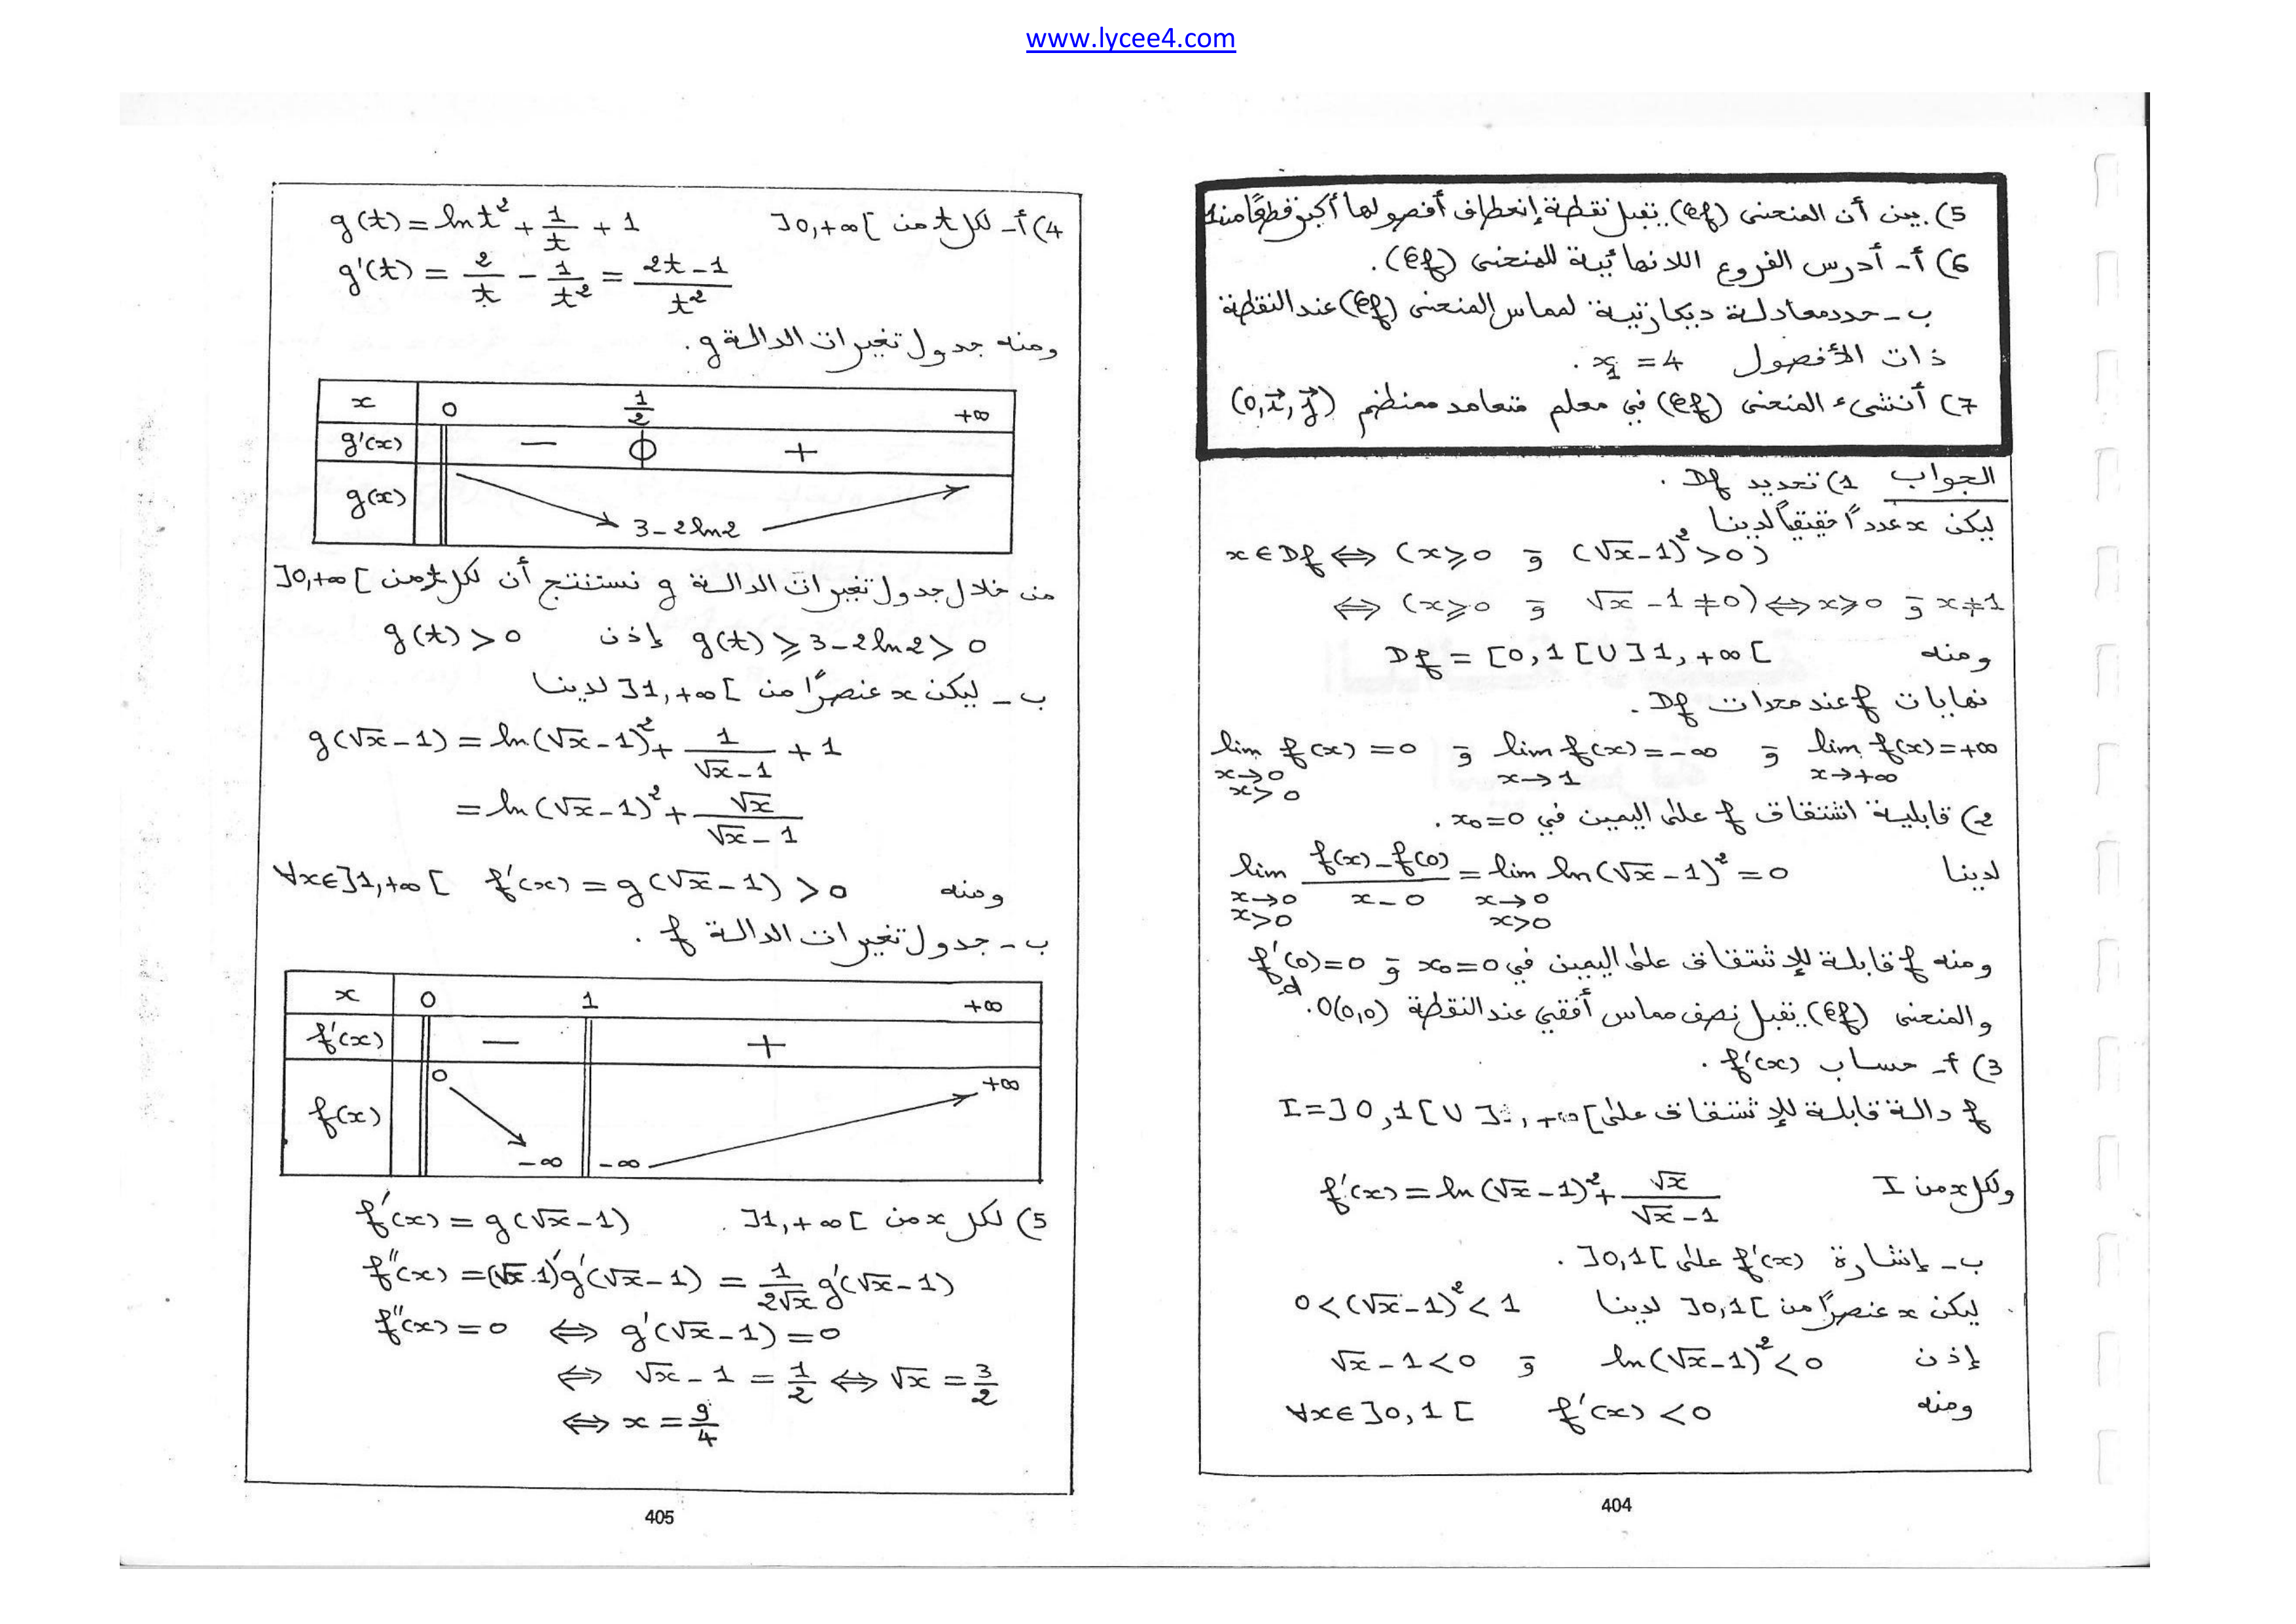 www.lycee4.com
5) .بين أن المنحنى (𝒞f) يقبل نقطة إنعطاف أفصولها أكبر قطعًا من 1
6) أ- أدرس الفروع اللانهائية للمنحنى (𝒞f).
ب- حدد معادلة ديكارتية لمماس المنحنى (𝒞f) عند النقطة
ذات الأفصول x₁ = 4 .
7) أنشىء المنحنى (𝒞f) في معلم متعامد ممنظم (0, i⃗, j⃗)
الجواب 1) تحديد Df .
ليكن x عددًا حقيقيًا لدينا
x ∈ Df ⟺ (x ⩾ 0 و (√x - 1)² > 0)
⟺ (x ⩾ 0 و √x - 1 ≠ 0) ⟺ x ⩾ 0 و x ≠ 1
ومنه Df = [0, 1[ U ]1, +∞[
نهايات f عند محدات Df .
lim f(x) = 0 و lim f(x) = -∞ و lim f(x) = +∞
x→0 x→1 x→+∞
x>0
2) قابلية اشتقاق f على اليمين في x₀=0 .
لدينا lim (f(x) - f(0))/(x - 0) = lim ln(√x - 1)² = 0
x→0 x→0
x>0 x>0
ومنه f قابلة للإشتقاق على اليمين في x₀=0 و f'd(0)=0
والمنحنى (𝒞f) يقبل نصف مماس أفقي عند النقطة O(0,0).
3) أ- حساب f'(x) .
f دالة قابلة للإشتقاق على I = ]0, 1[ U ]1, +∞[
ولكل x من I f'(x) = ln(√x - 1)² + √x/(√x - 1)
ب- إشارة f'(x) على ]0,1[ .
ليكن x عنصرًا من ]0,1[ لدينا 0 < (√x - 1)² < 1
إذن ln(√x - 1)² < 0 و √x - 1 < 0
ومنه f'(x) < 0 ∀x∈]0,1[
404
4) أ- لكل t من ]0,+∞[ g(t) = ln t² + 1/t + 1
g'(t) = 2/t - 1/t² = (2t - 1)/t²
ومنه جدول تغيرات الدالة g .
x 0 1/2 +∞
g'(x) − 0 +
g(x) 3 - 2ln2
من خلال جدول تغيرات الدالة g نستنتج أن لكل t من ]0,+∞[
g(t) ⩾ 3 - 2ln2 > 0 إذن g(t) > 0
ب- ليكن x عنصرًا من ]1,+∞[ لدينا
g(√x - 1) = ln(√x - 1)² + 1/(√x - 1) + 1
= ln(√x - 1)² + √x/(√x - 1)
ومنه ∀x∈]1,+∞[ f'(x) = g(√x - 1) > 0
ب- جدول تغيرات الدالة f .
x 0 1 +∞
f'(x) − +
f(x) 0 -∞ -∞ +∞
5) لكل x من ]1,+∞[ . f'(x) = g(√x - 1)
f''(x) = (√x - 1)' g'(√x - 1) = 1/(2√x) g'(√x - 1)
f''(x) = 0 ⟺ g'(√x - 1) = 0
⟺ √x - 1 = 1/2 ⟺ √x = 3/2
⟺ x = 9/4
405